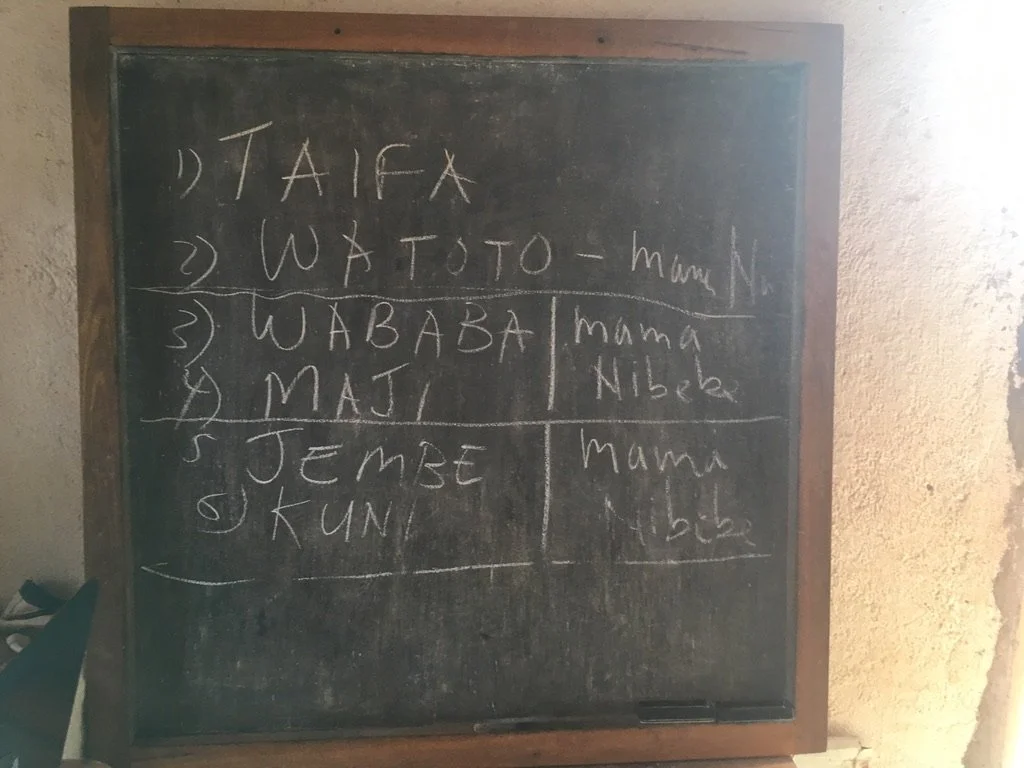 1) TAIFA
2) WATOTO - mama
3) WABABA | mama
4) MAJI | Nibebe
5 JEMBE | mama
6) KUNI | Nibebe